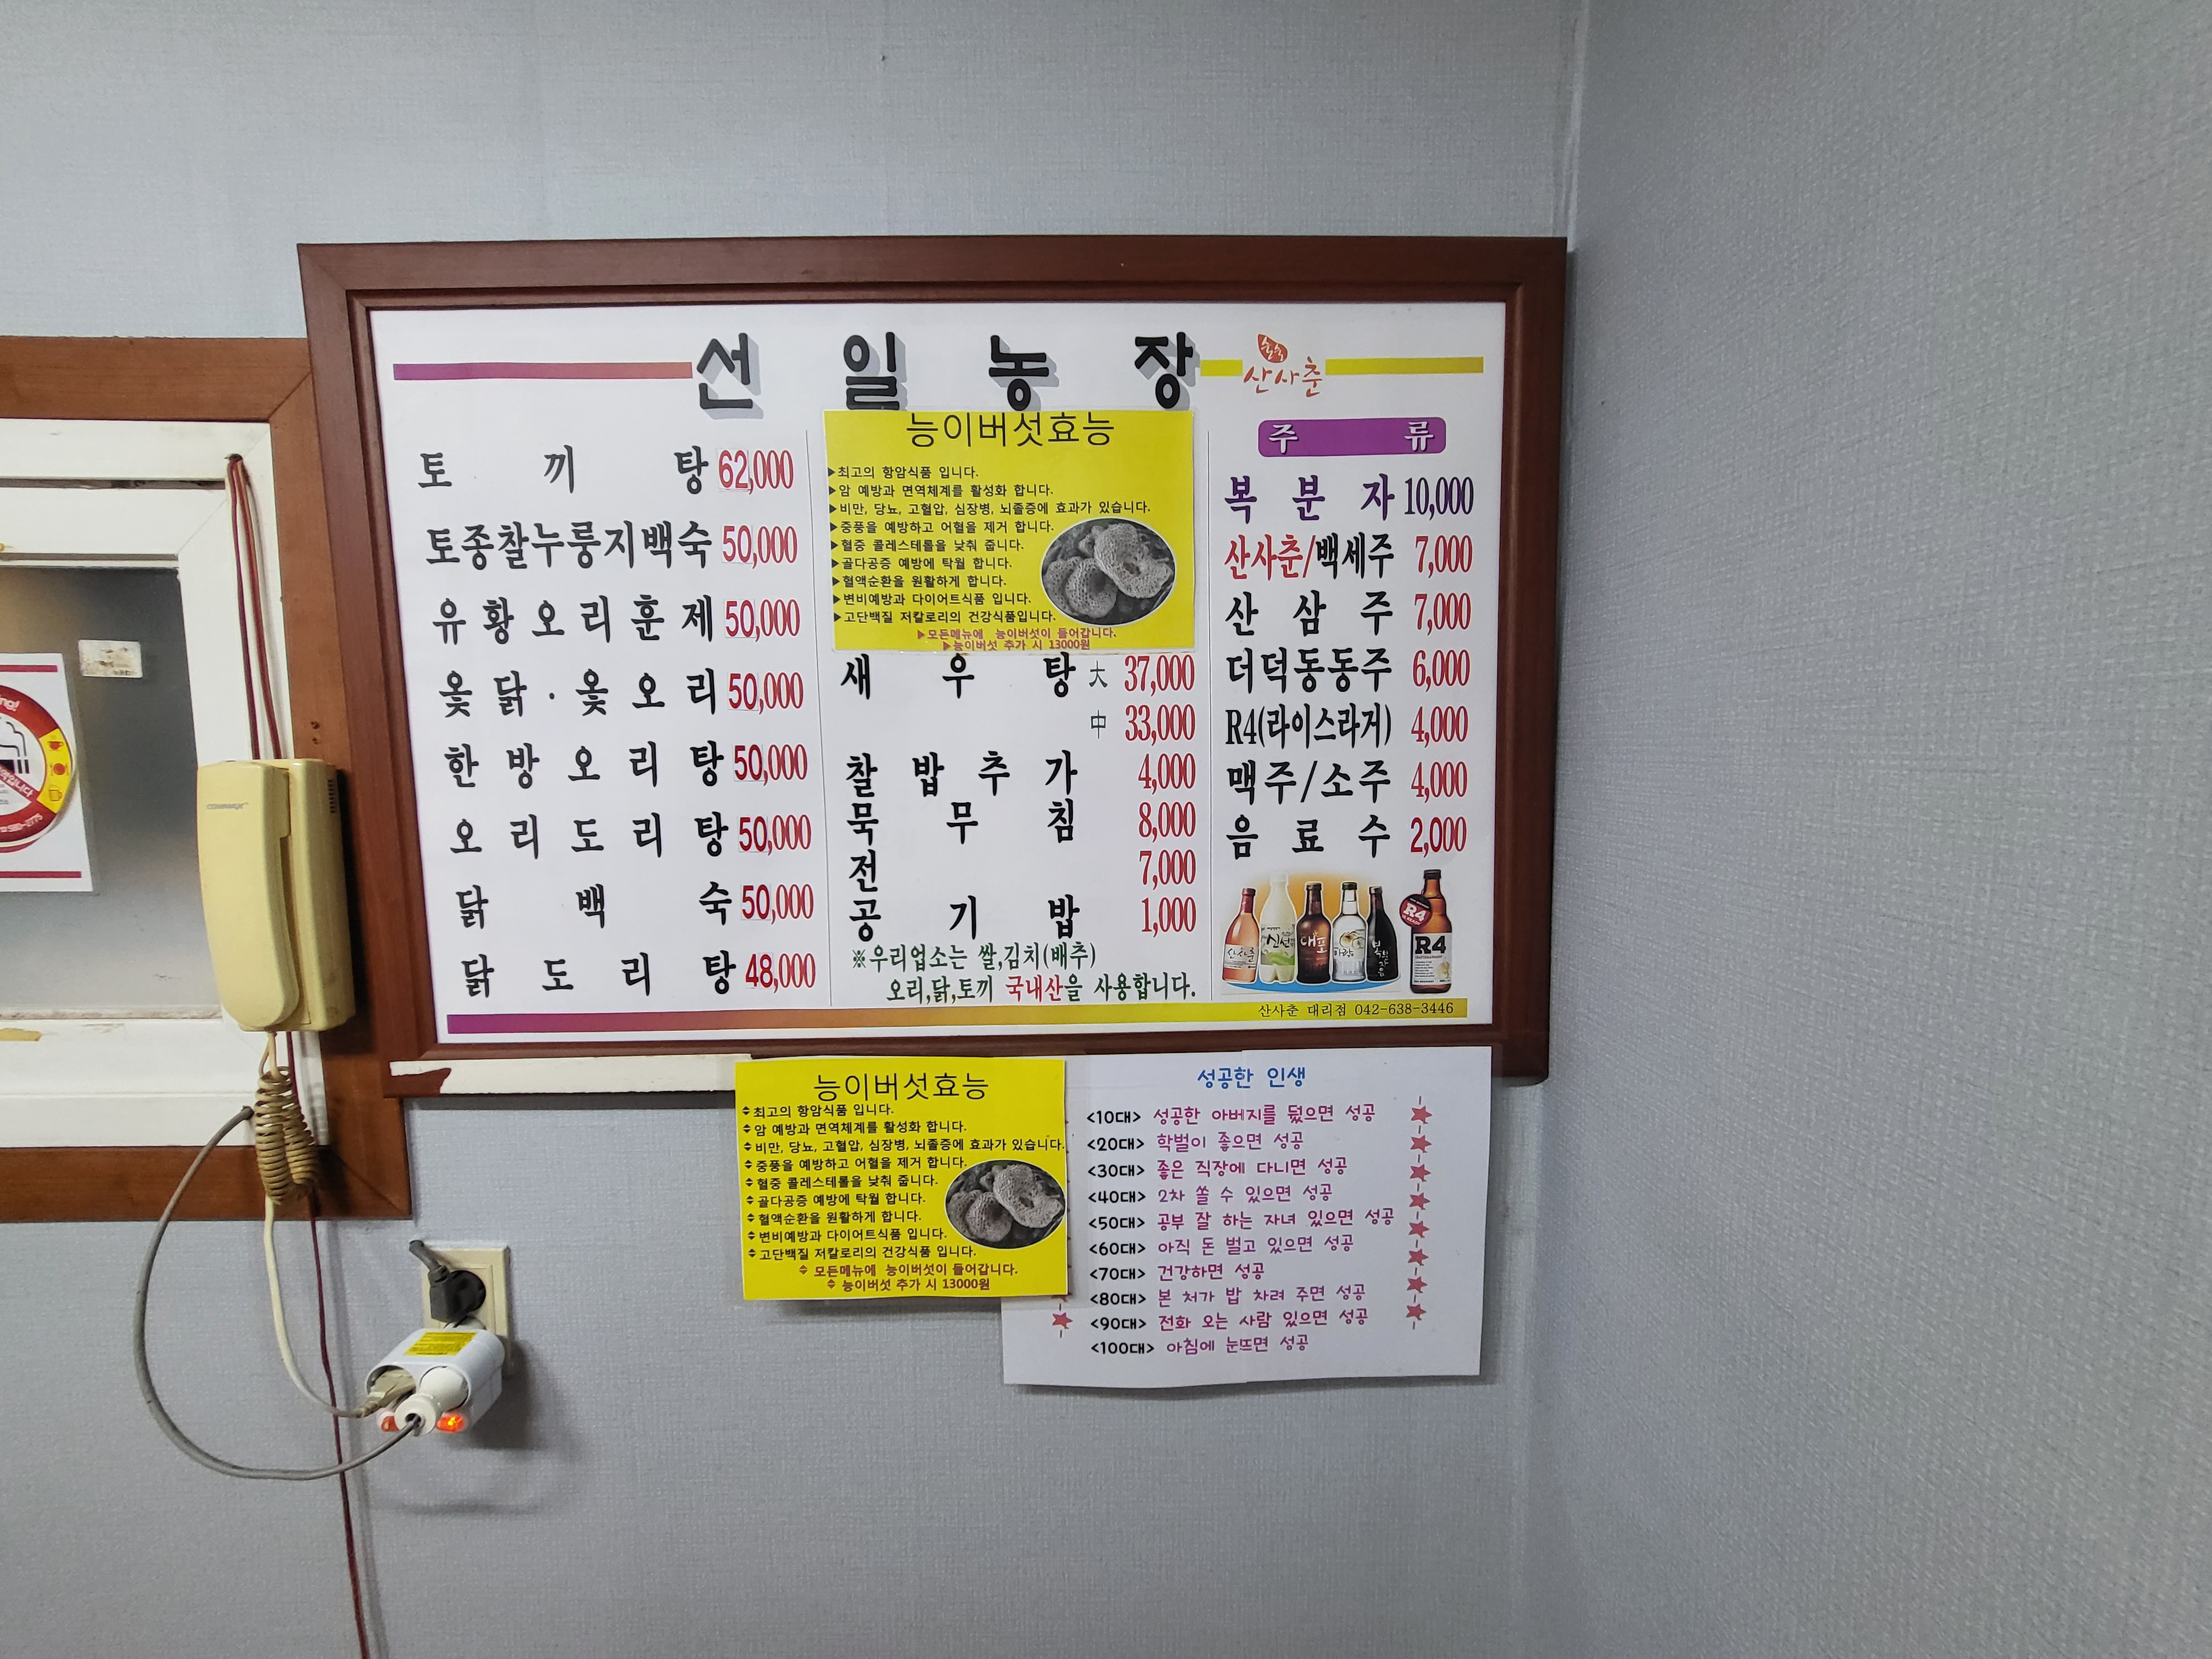 선일농장
산사춘
토끼탕 62,000
토종찰누룽지백숙 50,000
유황오리훈제 50,000
옻닭·옻오리 50,000
한방오리탕 50,000
오리도리탕 50,000
닭백숙 50,000
닭도리탕 48,000
능이버섯효능
▶최고의 항암식품 입니다.
▶암 예방과 면역체계를 활성화 합니다.
▶비만, 당뇨, 고혈압, 심장병, 뇌졸증에 효과가 있습니다.
▶중풍을 예방하고 어혈을 제거 합니다.
▶혈중 콜레스테롤을 낮춰 줍니다.
▶골다공증 예방에 탁월 합니다.
▶혈액순환을 원활하게 합니다.
▶변비예방과 다이어트식품 입니다.
▶고단백질 저칼로리의 건강식품입니다.
▶모든메뉴에 능이버섯이 들어갑니다.
▶능이버섯 추가 시 13000원
새우탕 大 37,000
中 33,000
찰밥추가 4,000
묵무침 8,000
전 7,000
공기밥 1,000
※우리업소는 쌀,김치(배추)
오리,닭,토끼 국내산을 사용합니다.
주류
복분자 10,000
산사춘/백세주 7,000
산삼주 7,000
더덕동동주 6,000
R4(라이스라거) 4,000
맥주/소주 4,000
음료수 2,000
산사춘
신선
대포
R4
R4
산사춘 대리점 042-638-3446
능이버섯효능
최고의 항암식품 입니다.
암 예방과 면역체계를 활성화 합니다.
비만, 당뇨, 고혈압, 심장병, 뇌졸증에 효과가 있습니다.
중풍을 예방하고 어혈을 제거 합니다.
혈중 콜레스테롤을 낮춰 줍니다.
골다공증 예방에 탁월 합니다.
혈액순환을 원활하게 합니다.
변비예방과 다이어트식품 입니다.
고단백질 저칼로리의 건강식품 입니다.
모든메뉴에 능이버섯이 들어갑니다.
능이버섯 추가 시 13000원
성공한 인생
<10대> 성공한 아버지를 뒀으면 성공
<20대> 학벌이 좋으면 성공
<30대> 좋은 직장에 다니면 성공
<40대> 2차 쏠 수 있으면 성공
<50대> 공부 잘 하는 자녀 있으면 성공
<60대> 아직 돈 벌고 있으면 성공
<70대> 건강하면 성공
<80대> 본 처가 밥 차려 주면 성공
<90대> 전화 오는 사람 있으면 성공
<100대> 아침에 눈뜨면 성공
COMMAX